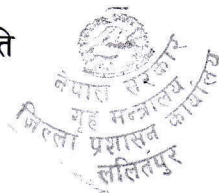 ति
नेपाल सरकार
गृह मन्त्रालय
जिल्ला प्रशासन कार्यालय
ललितपुर